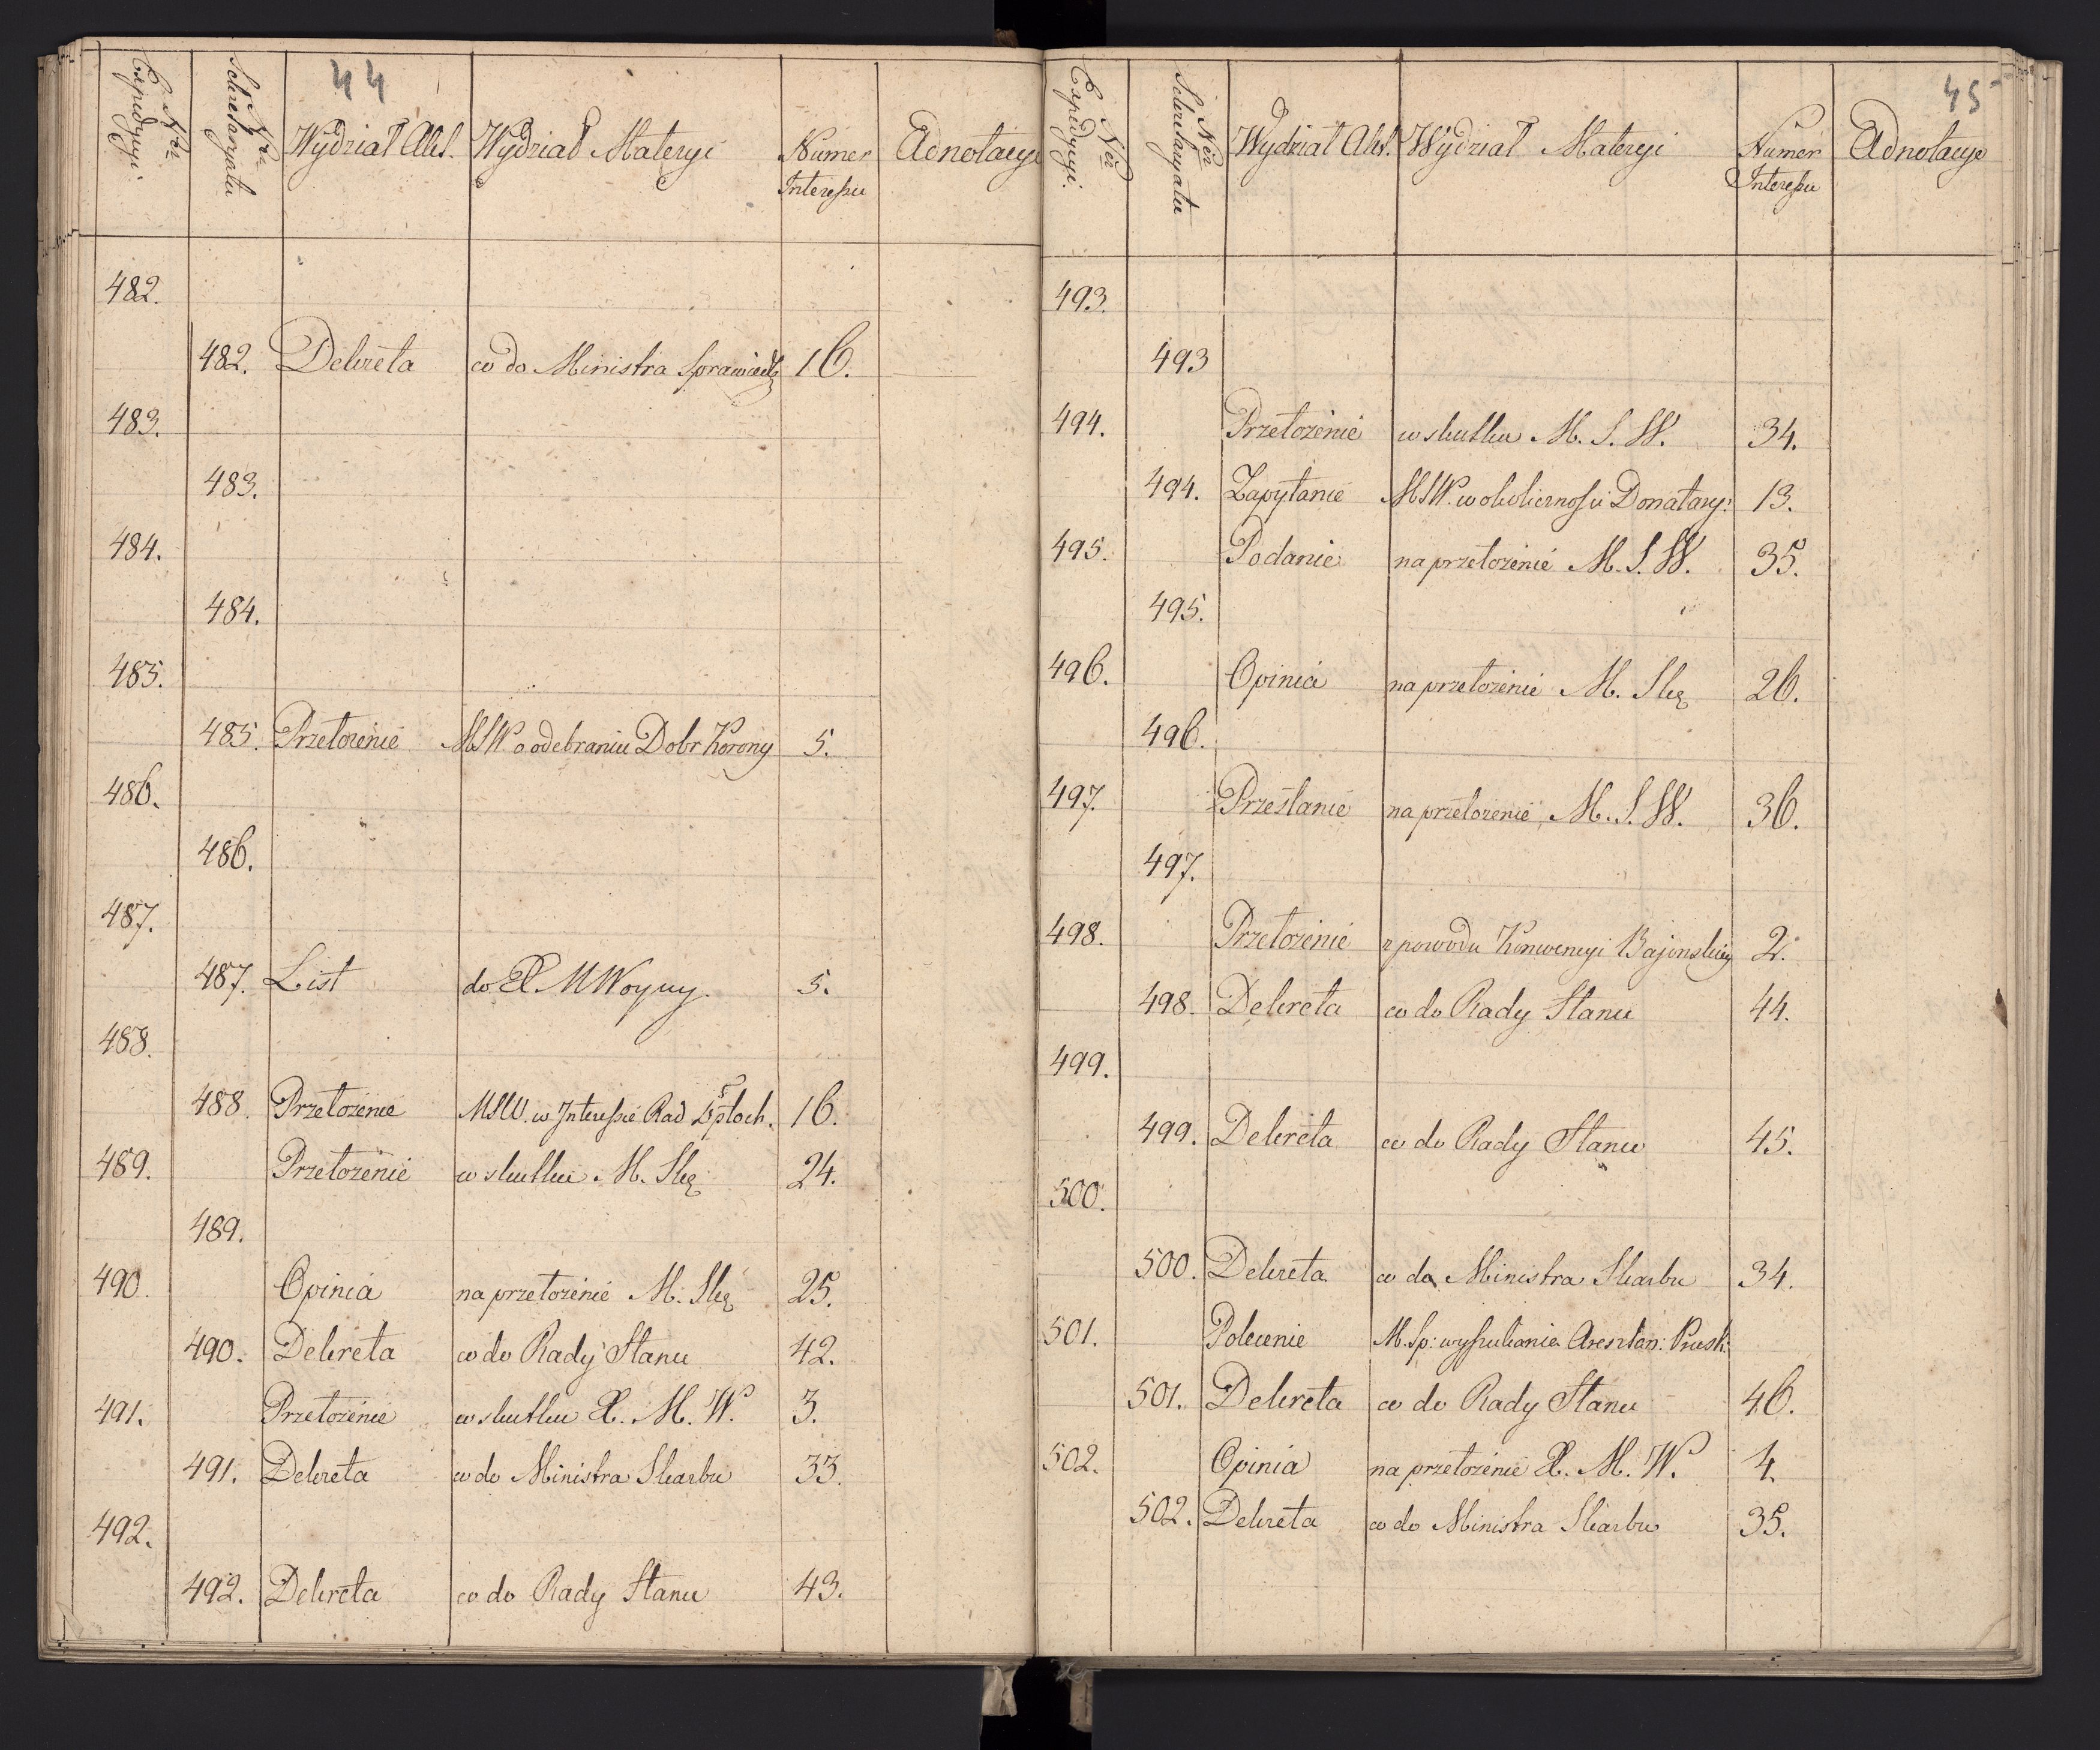 44
Nr Expedycyi. Nr Sekretaryatu Wydział Akt. Wydział Materyi Numer Interessu Adnotacye
482.
482. Dekreta co do Ministra Sprawiedl 16.
483.
483.
484.
484.
485.
485. Przełożenie MSW o odebraniu Dobr Korony 5.
486.
486.
487.
487. List do X. M Woyny. 5.
488.
488. Przełożenie MSW. w Interessie Rad 16.
489. Przełożenie w skutku M. Skę 24.
489.
490. Opinia na przełożenie M. Skę 25.
490. Dekreta co do Rady Stanu 42.
491. Przełożenie w skutku X. M. W. 3.
491. Dekreta co do Ministra Skarbu 33.
492.
492. Dekreta co do Rady Stanu 43.
45
Nr Expedycyi. Nr Sekretaryatu Wydział Akt. Wydział Materyi Numer Interessu Adnotacye
493.
493
494. Przełożenie w skutku M. S. W. 34.
494. Zapytanie MSW. w okoliczności Donatary: 13.
495. Podanie na przełożenie M. S. W. 35.
495.
496. Opinia na przełożenie M. Skę 26.
496.
497. Przesłanie na przełożenie M. S. W. 36.
497.
498. Przełożenie z powodu Konwencyi Bajonskiey 2.
498. Dekreta co do Rady Stanu 44.
499.
499. Dekreta co do Rady Stanu 45.
500.
500. Dekreta co do Ministra Skarbu 34.
501. Polecenie M. Sp: wyszukania Aresztan: Prusk:
501. Dekreta co do Rady Stanu 46.
502. Opinia na przełożenie X. M. W. 4.
502. Dekreta co do Ministra Skarbu 35.